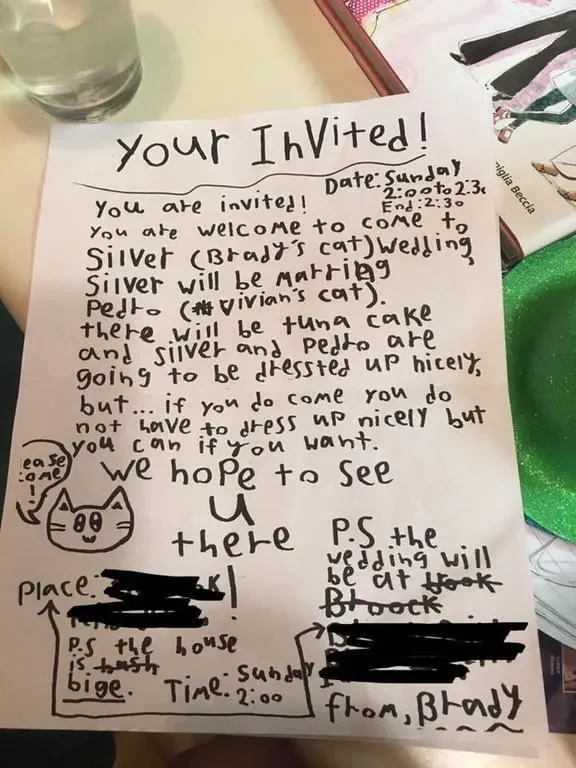 Your Invited!
Date: Sunday
2:00 to 2:30
End: 2:30
You are invited!
You are welcome to come to
Silver (Brady's cat) wedding,
Silver will be Marring
Pedro (Vivian's cat).
there will be tuna cake
and silver and Pedro are
going to be dressted up nicely,
but... if you do come you do
not have to dress up nicely but
you can if you want.
ease
ome
!
We hope to see
u
there
Place: !
P.S the house
is
bige.
Time: Sunday
2:00
P.S the
wedding will
be at book
Broock
from, Brady
niglia Beccia